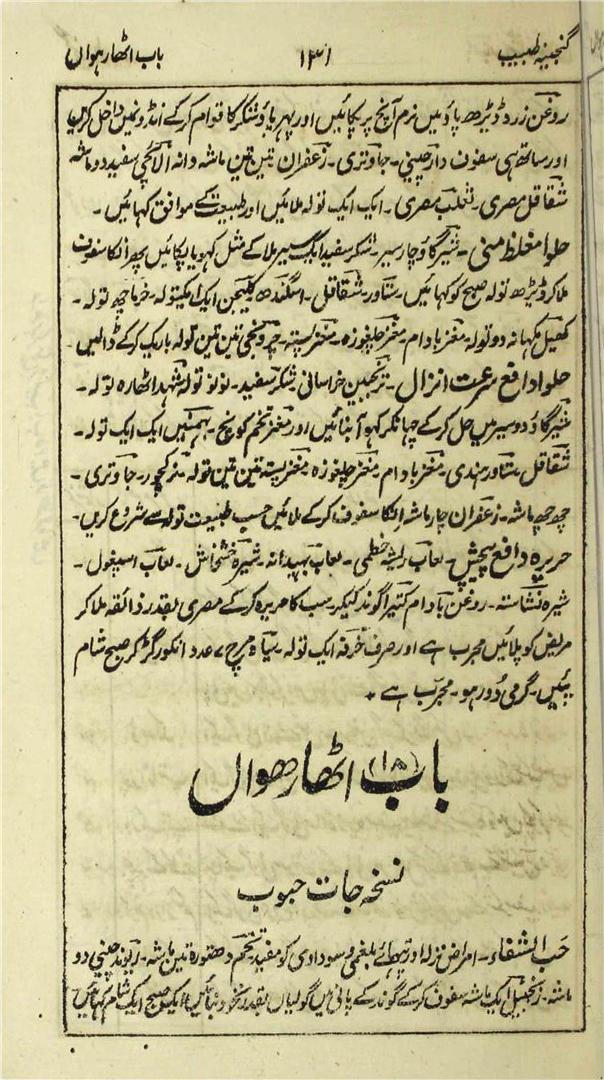 گنجینہ طبیب ۱۳۱ باب اٹھارہواں
روغن زرد ڈیڑھ پاؤ میں نرم آنچ پر پکائیں اور پھر پاؤ شکر کا قوام کرکے انڈونمیں داخل کریں
اور ساتھ ہی سفوف دارچینی۔ جاوتری۔ زعفران تین تین ماشہ دانہ الائچی سفید دو ماشہ
شقاقل مصری۔ ثعلب مصری۔ ایک ایک تولہ ملائیں اور طبیعت کے موافق کھائیں۔
حلوا مغلظ منی۔ شیر گاؤ چار سیر۔ شکر سفید ایک سیر ملا کے مثل کہویا پکائیں پھر انکا سفوف
ملا کر ڈیڑھ تولہ صبح کو کھائیں۔ ستاور۔ شقاقل۔ اسگندھ۔ کلیجن ایک ایکتولہ۔ خرما چھ تولہ۔
کھیل مکہانہ دو تولہ۔ مغز بادام۔ مغز چلغوزہ۔ مغز پستہ۔ چرونجی تین تین تولہ باریک کرکے ڈالیں
حلوا دافع سرعت انزال۔ ترنجبین خراسانی۔ شکر سفید۔ نو نو تولہ شہد اٹھارہ تولہ۔
شیر گاؤ دو سیر میں حل کرکے چھانکر کہوآ بنائیں اور مغز تخم کونچ۔ بہمنیں ایک ایک تولہ۔
شقاقل۔ ستاور ہندی۔ مغز بادام۔ مغز چلغوزہ مغز پستہ تین تین تولہ۔ نرکچور۔ جاوتری۔
چھ چھ ماشہ۔ زعفران چار ماشہ انکا سفوف کرکے ملائیں حسب طبیعت تولہ سے شروع کریں۔
حریرہ دافع پیچش۔ لعاب ریشہ خطمی۔ لعاب بہیدانہ۔ شیرہ خشخاش۔ لعاب اسپغول۔
شیرہ نشاستہ۔ روغن بادام کتیرا گوند کیکر سب کا حریرہ کرکے مصری بقدر ذائقہ ملا کر
مریض کو پلائیں مجرب ہے اور صرف خرفہ ایک تولہ۔ سیاہ مرچ ۷ عدد انکو رگڑ کر صبح شام
پئیں۔ گرمی دور ہو۔ مجرّب ہے *
باب (۱۸) اٹھارھواں
نسخہ جات حبوب
حَب الشفاء۔ امراض نزلہ اور تپہائے بلغمی وسوداوی کو مفید۔ تخم دھتورہ تین ماشہ۔ ریوند چینی دو
ماشہ۔ زنجبیل ایک ماشہ سفوف کرکے گوند کے پانی میں گولیاں بقدر نخود بنائیں ایک صبح ایک شام کھائیں